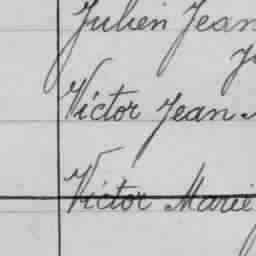 Julien Jean
Victor Jean
Victor Marie